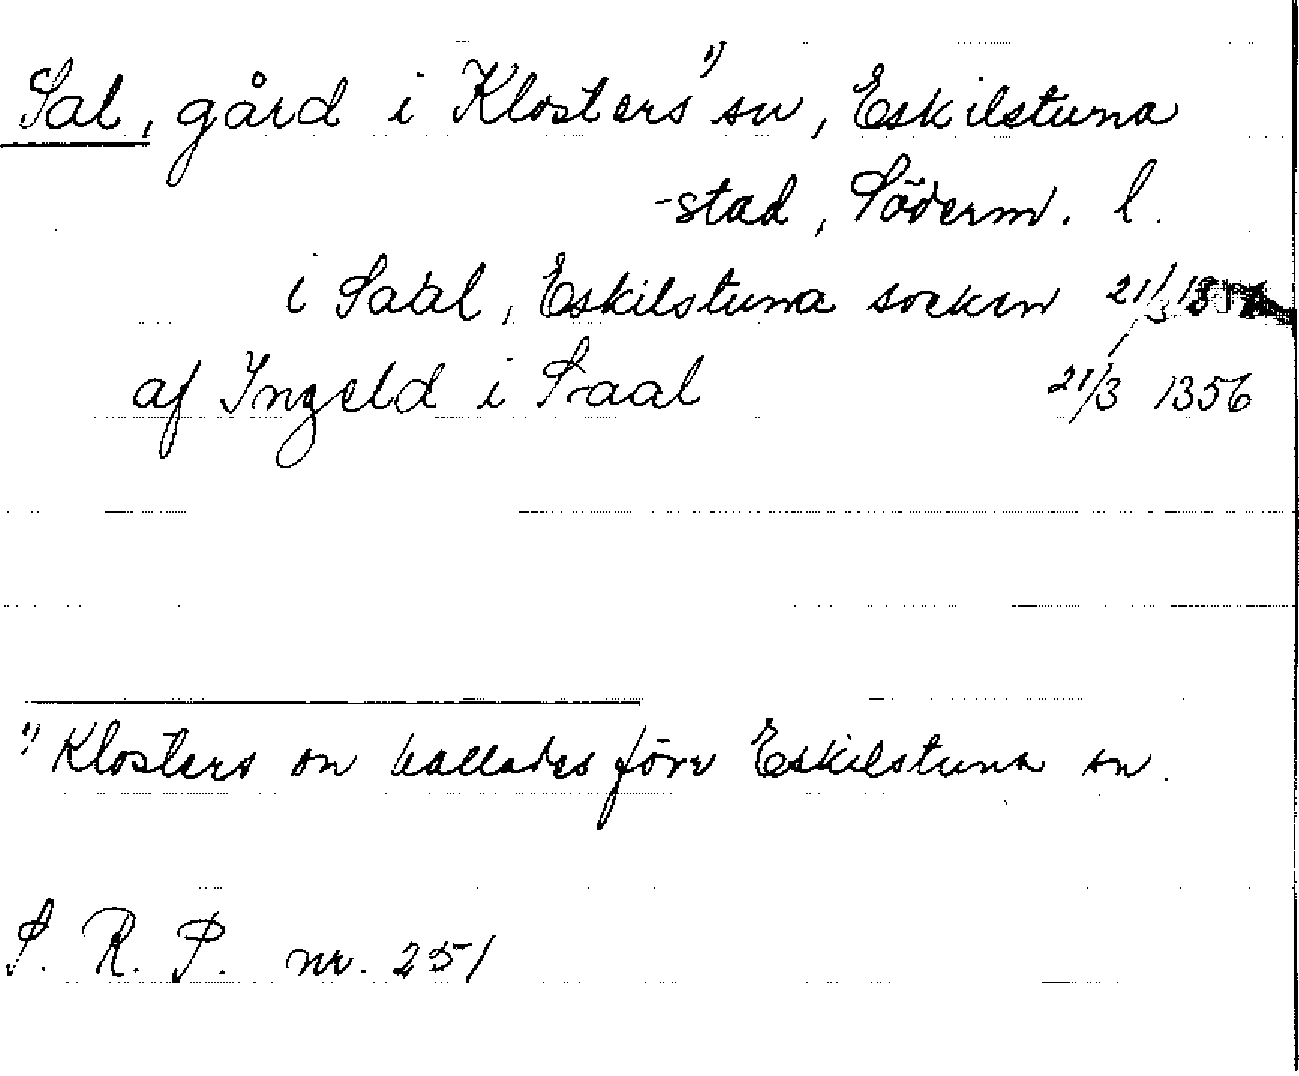 Sal, gård i Klosters ¹⁾ sn, Eskilstuna
-stad, Söderm. l.
i Saal, Eskilstuna socken 21/3
af Ingeld i Saal 21/3 1356
¹⁾ Klosters sn kallades förr Eskilstuna sn.
S. R. P. nr. 251